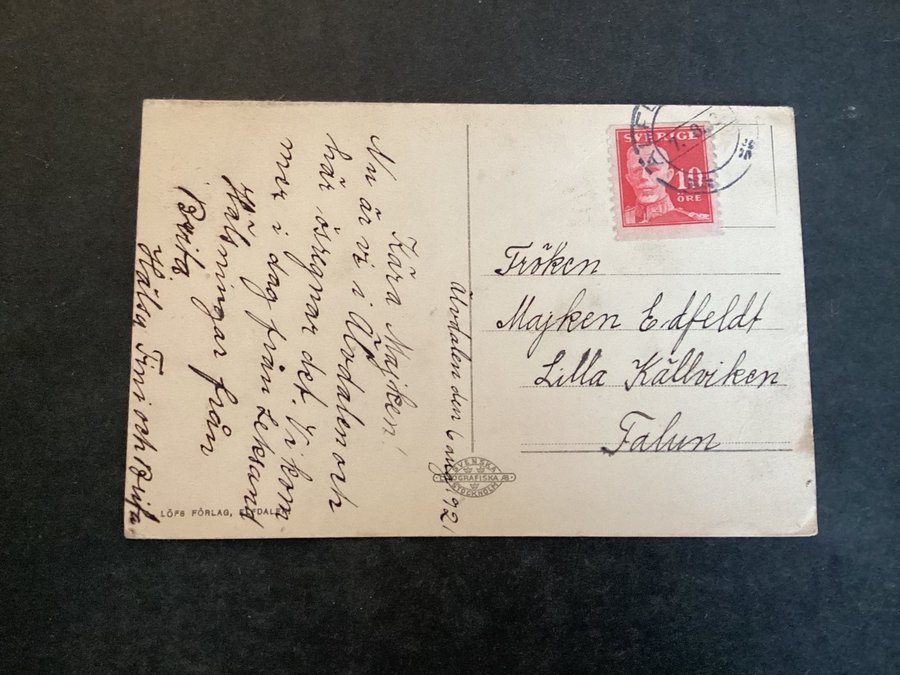 Älvdalen den 6 aug. 1921
Kära Majken!
Nu är vi i Älvdalen och
här ösregnar det. Vi kom
mer i dag från Leksand
Hälsningar från
Brita
Hälsa Tini och Brita
SVERIGE
10
ÖRE
ÄLFD
Fröken
Majken Edfeldt
Lilla Källviken
Falun
SVENSKA
LITOGRAFISKA AB
STOCKHOLM
LÖFS FÖRLAG, ELFDALEN